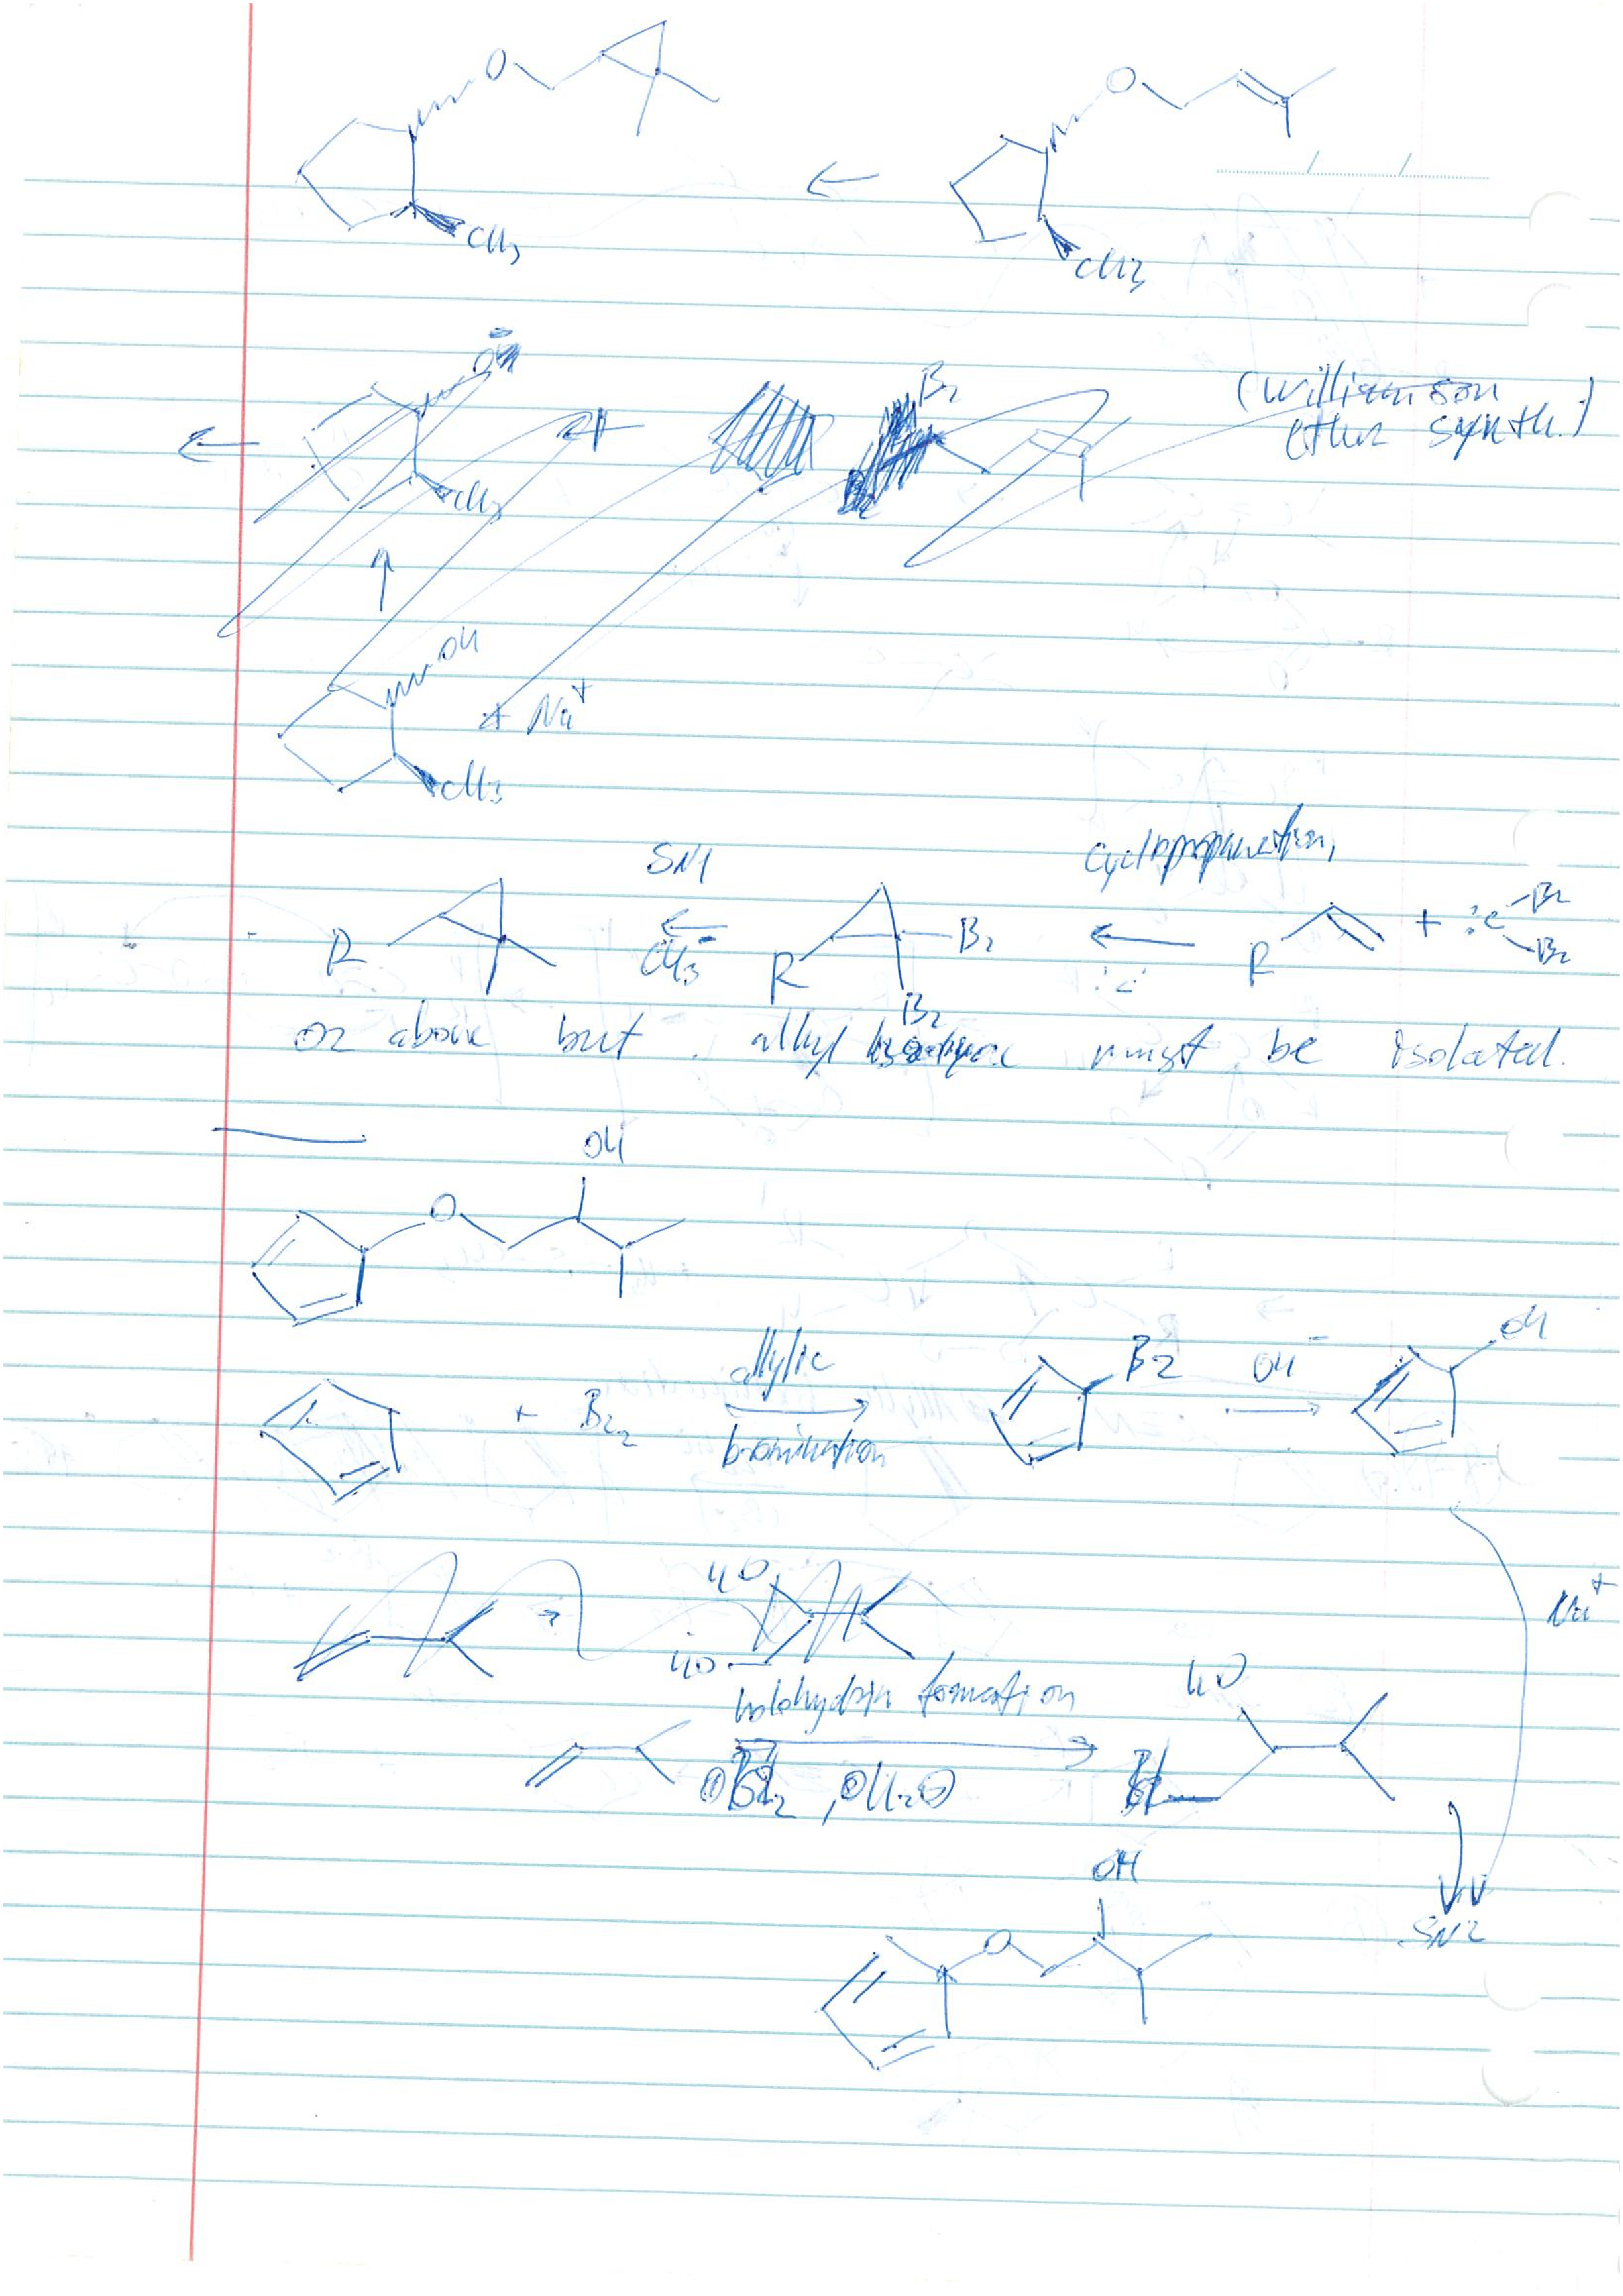 O
O
CH3
CH3
Br
(Williamson
ether synth.)
CH3
OH
+ Na+
CH3
SN1
cyclopropanation,
R
CH3-
R
Br
Br
R
+ :C
Br
Br
or above but allyl must be isolated.
OH
O
+ Br2
allylic
bromination
Br
OH-
OH
HO
HO
Na+
halohydrin formation
HO
①Br2, ②H2O
OH
O
SN2